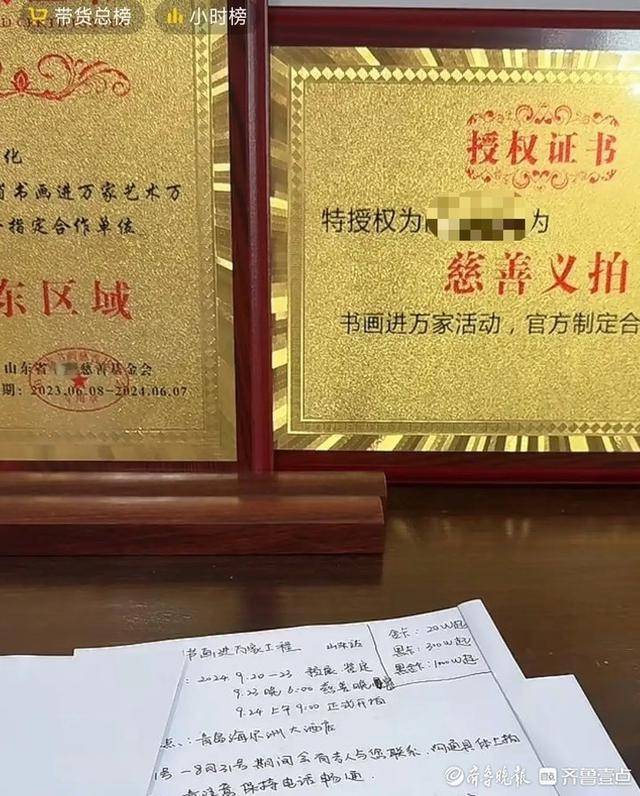 带货总榜
小时榜
化
书画进万家艺术万
指定合作单位
东区域
山东省 慈善基金会
期：2023.06.08-2024.06.07
授权证书
特授权为 为
慈善义拍
书画进万家活动，官方制定合
书画进万家工程 山东站
金卡：20W起
黑卡：300W起
黑金卡：1000W起
：2024 9.20-23 鉴定
9.23 晚 6:00 慈善晚
9.24 上午 9:00 正式开拍
点：青岛海尔洲大酒店
号-8月31号期间会有专人与您联系，沟通具体上拍
保持电话畅通
齐鲁晚报 齐鲁壹点